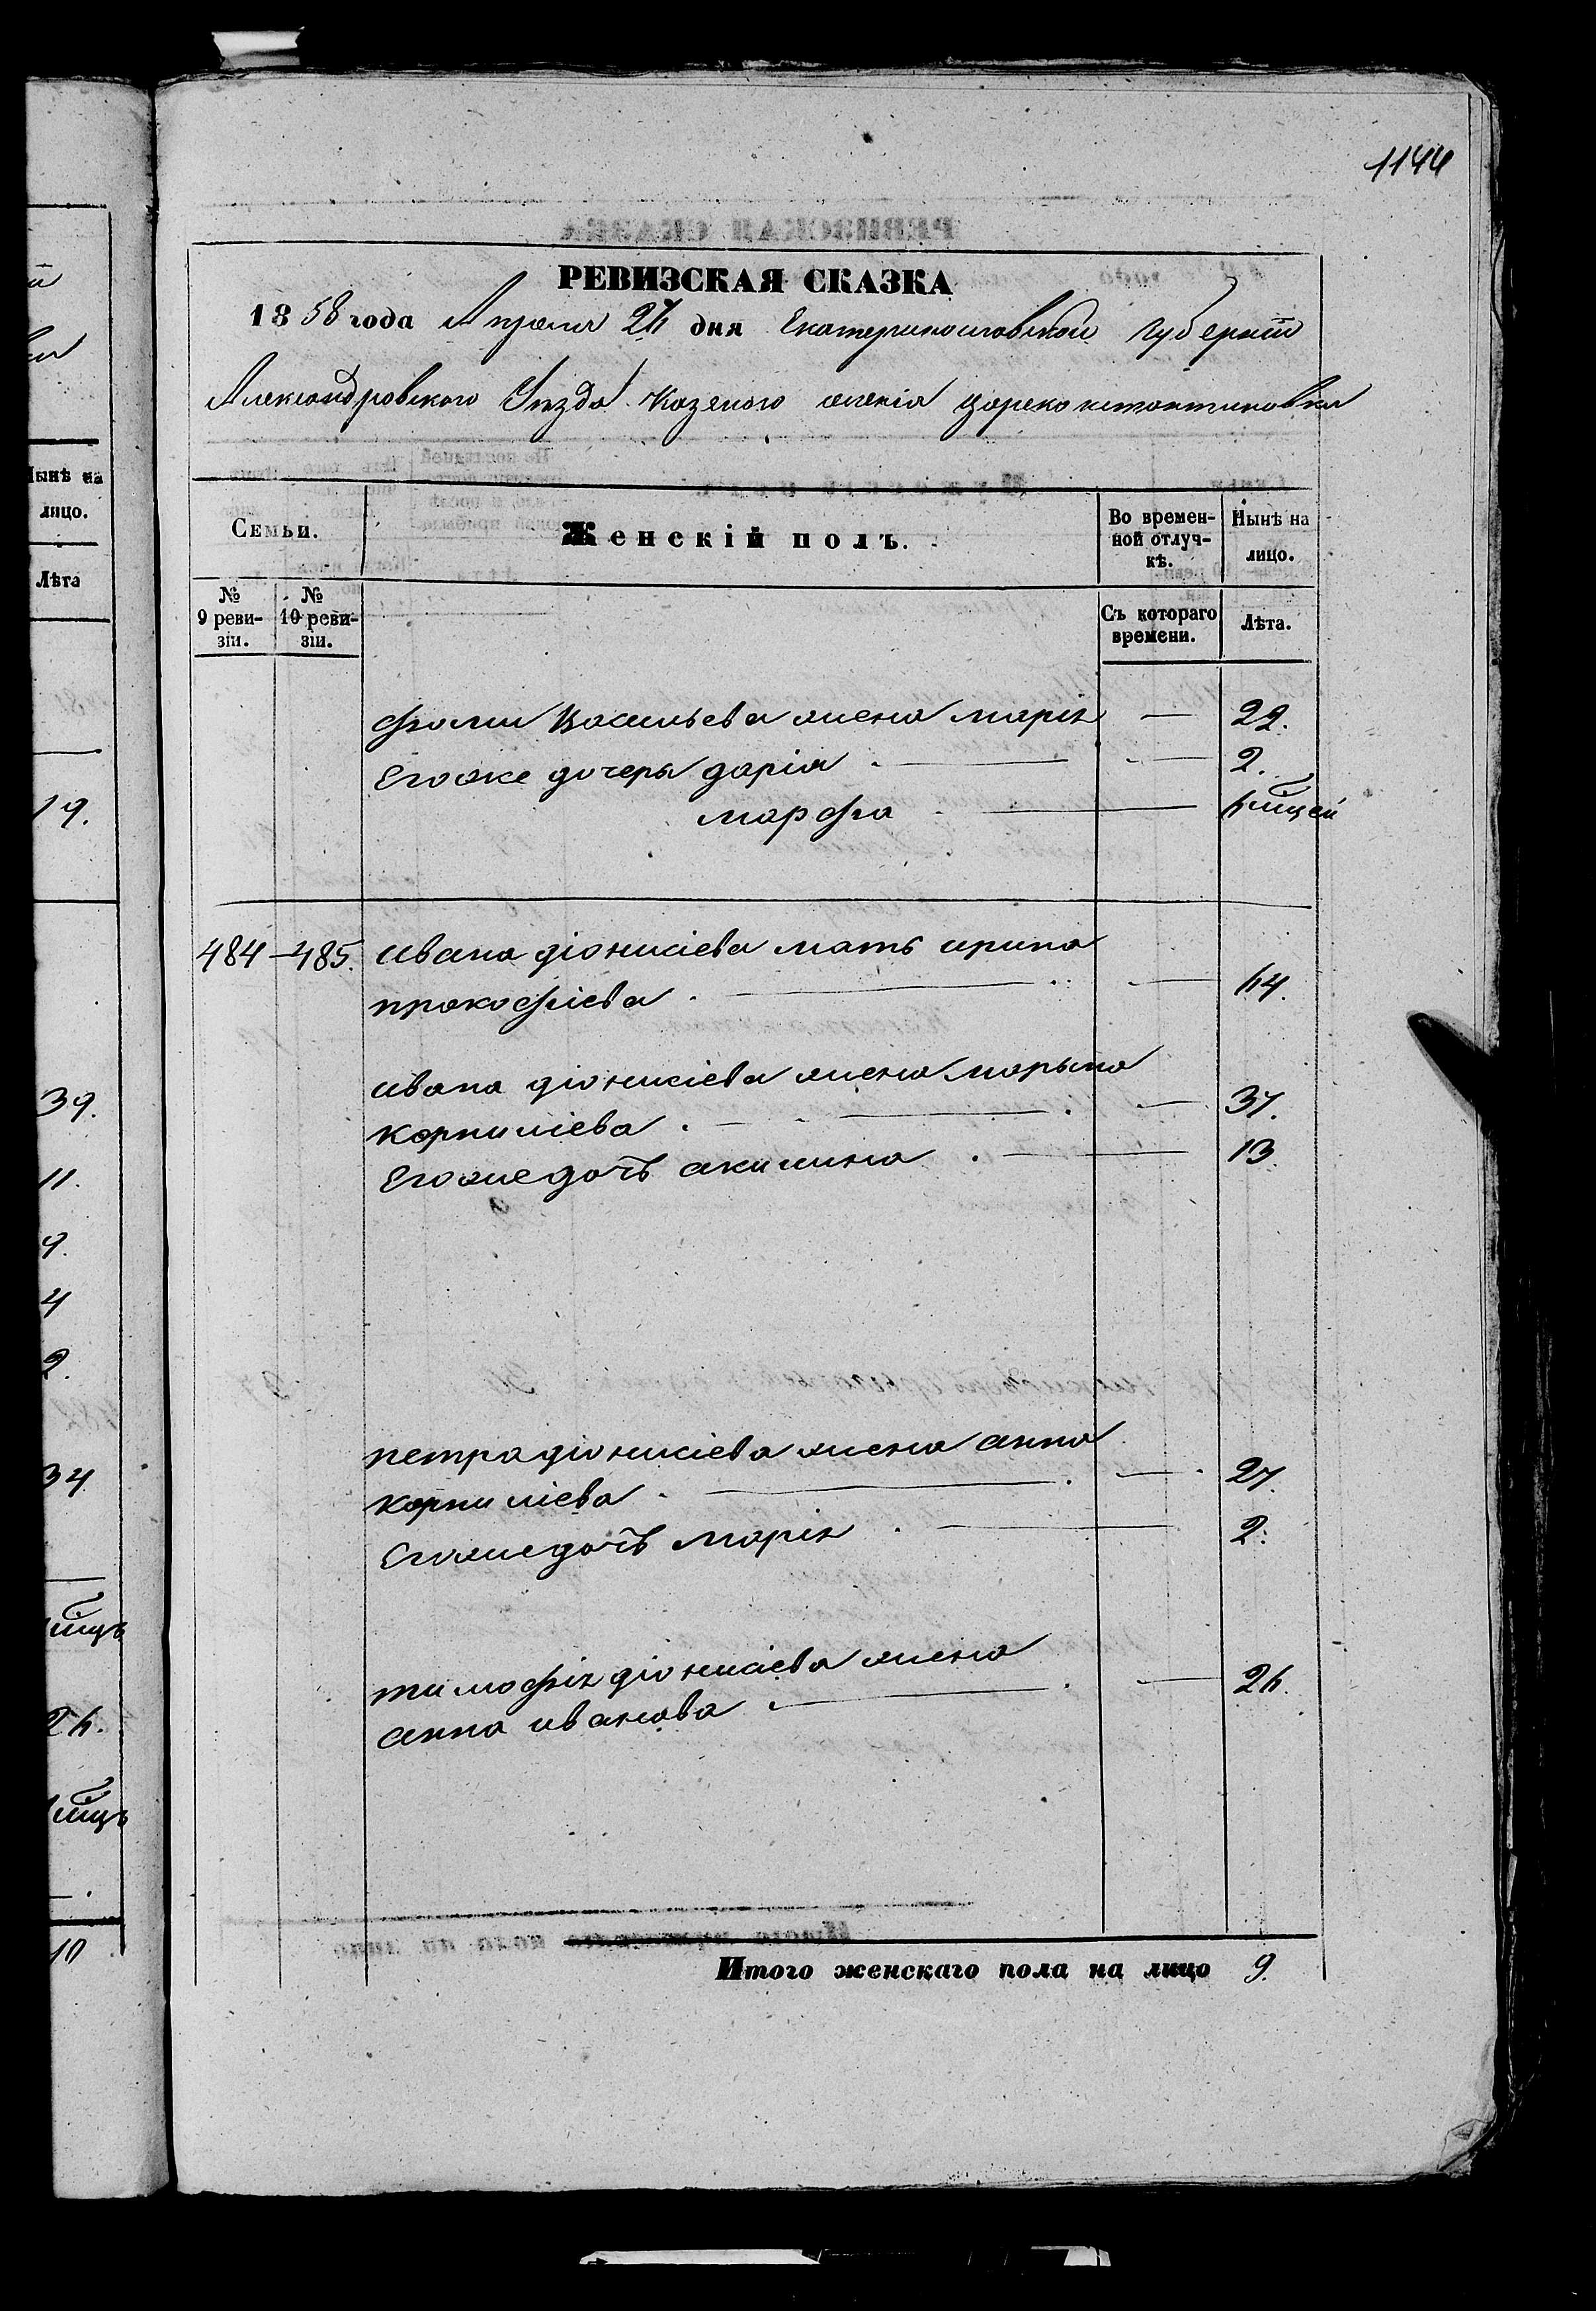 1144
РЕВИЗСКАЯ СКАЗКА
1858 года Апреля 25 дня Екатеринославской Губерніи
Александровского Уезда Казеного селенія царекокнстантиновки
Семьи.
Женскій полъ.
Во времен-
ной отлуч-
кѣ.
Нынѣ на
лицо.
№
9 реви-
зіи.
№
10 реви-
зіи.
Съ котораго
времени.
Лѣта.
фомы Васильева жена марія — 22.
Егоже дочеры дарія — 2.
марфа — мцей
484 — 485. ивана діонисіева мать ирина
прокофіева — 54.
ивана діонисіева жена марьяна
корниліева — 37.
Егоже дочь акилина — 13
петра діонисіева жена анна
корниліева — 27.
Егоже дочь марія — 2.
тимофія діонисіева жена
анна иванова — 25.
Итого женскаго пола на лицо 9.
Нынѣ на
лицо.
Лѣта
19.
39.
11.
9.
4
2.
34
25.
10